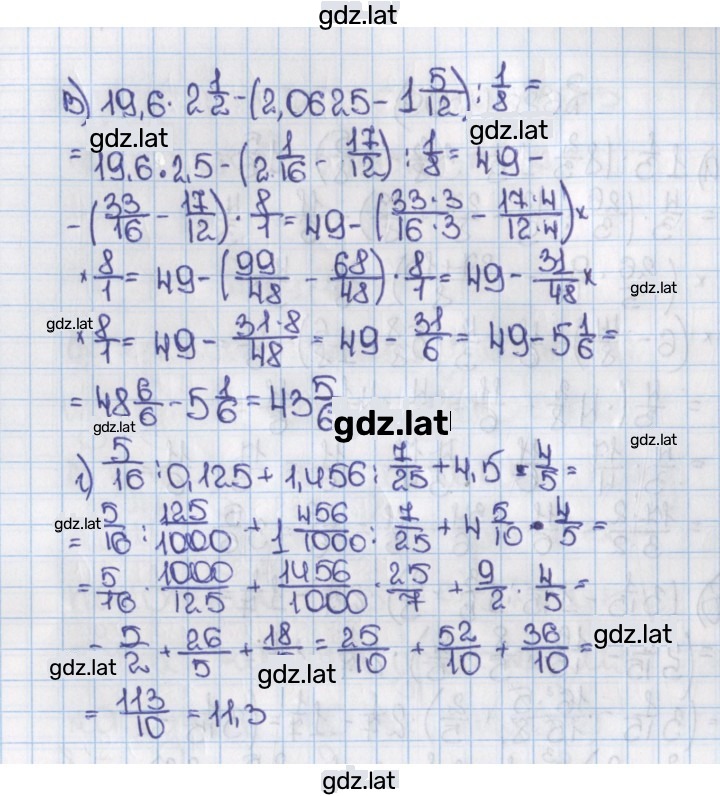 gdz.lat
в) 19,6 · 2 1/2 - (2,0625 - 1 5/12) : 1/8 =
gdz.lat
= 19,6 · 2,5 - (2 1/16 - 17/12) : 1/8 = 49 -
- (33/16 - 17/12) · 8/1 = 49 - (33·3/16·3 - 17·4/12·4) ×
× 8/1 = 49 - (99/48 - 68/48) · 8/1 = 49 - 31/48 × gdz.lat
gdz.lat
× 8/1 = 49 - 31·8/48 = 49 - 31/6 = 49 - 5 1/6 =
= 48 6/6 - 5 1/6 = 43 5/6
gdz.lat gdz.lat gdz.lat
г) 5/16 : 0,125 + 1,456 : 7/25 + 4,5 · 4/5 =
gdz.lat
= 5/16 : 125/1000 + 1 456/1000 : 7/25 + 4 5/10 · 4/5 =
= 5/16 · 1000/125 + 1456/1000 · 25/7 + 9/2 · 4/5 =
- 5/2 + 26/5 + 18/ = 25/10 + 52/10 + 36/10 = gdz.lat
gdz.lat gdz.lat
= 113/10 = 11,3
gdz.lat